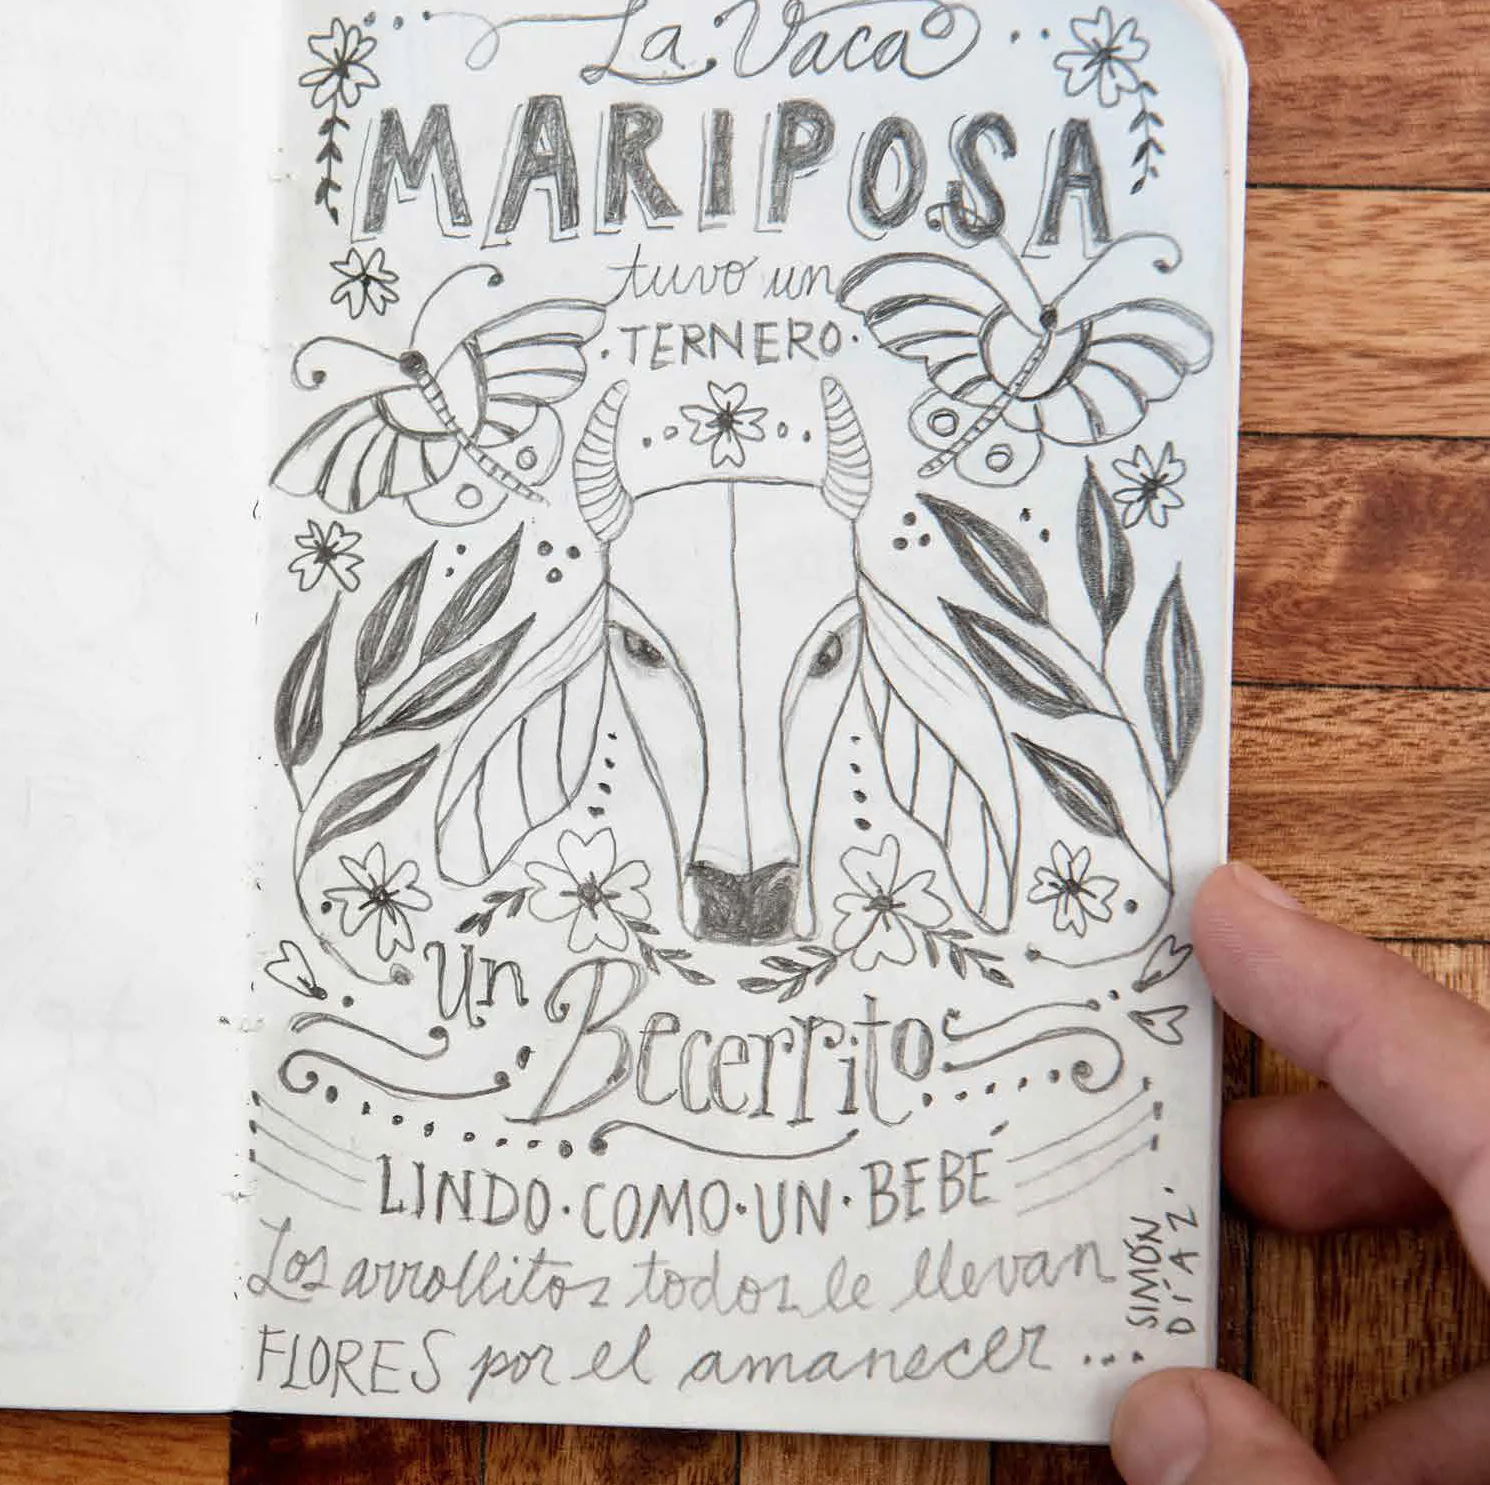 La Vaca
MARIPOSA
tuvo un
· TERNERO ·
Un
Becerrito
LINDO · COMO · UN · BEBÉ
Los arrollitos todos le llevan
FLORES por el amanecer ...
SIMÓN
DÍAZ